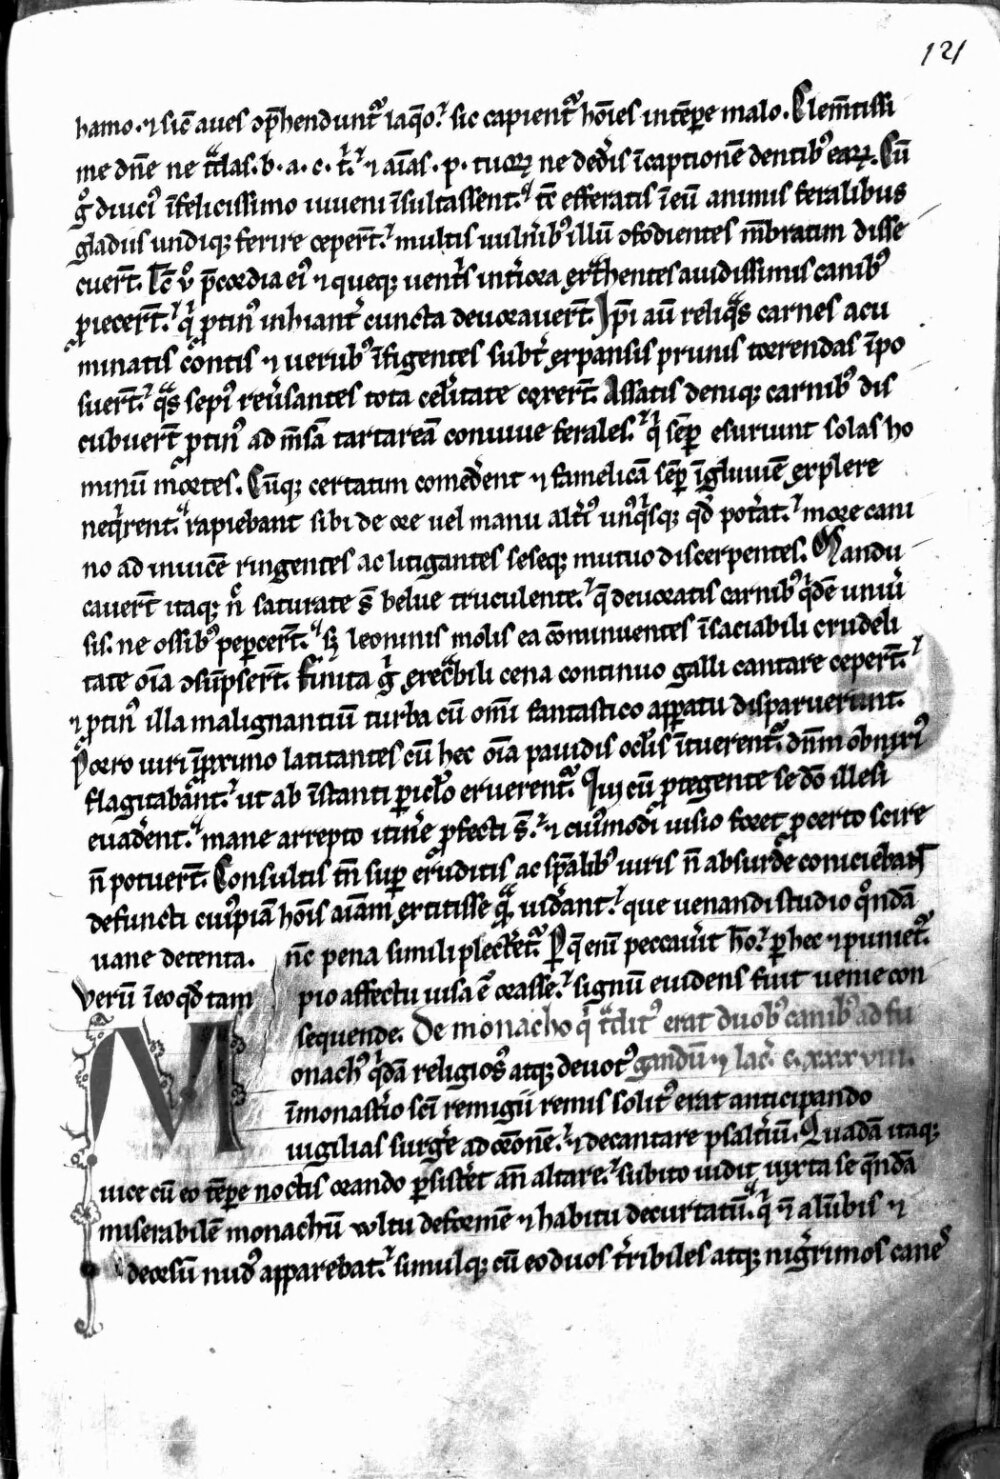 121
hamo. ⁊ sic̄ aues ↄp̄hendunt᷑ laq̄o. sic capient᷑ ho᷑ies in tēpꝛe malo. Clem̄tissi
me dn̄e ne tͣdas. b. a. c. t. ⁊ aı̄as. p. tuoꝝ ne dedis ı̄ captionē dentibꝰ eaꝝ. Cū
gͦ diuciꝰ ı̄felicissimo iuueni ı̄sultassent. tc̄ efferatis ı̄ eū animis feralibus
gladiis undiqꝫ ferire ceper̄t. multis uuln̄ibꝰ illū ↄfodientes mēbratim disse
cuer̄t. v̊ p̄cordia eiꝰ ⁊ queqꝫ uent̄s int̄iora extͣhentes auidissimis canibꝰ
ꝓiecer̄t. qͥ ꝓtinꝰ inhiant̄ cuncta deuorauer̄t. Ip̄i aū reliqͣs carnes acu
minatis cͦontis ⁊ uerubꝰ ı̄figentes subt̄ expansis prunis torrendas ı̄po
suer̄t. qͣs sepiꝰ reūsantes tota cel̄itate coxer̄t. Assatis deniqꝫ carnibꝰ dis
cubuer̄t ꝓtinꝰ ad m̄sā tartareā conuiue ferales. qͥ sēꝑ esuriunt solas ho
minū mortes. Cūqꝫ certatim comed̄ent ⁊ famelicā sēꝑ ı̄gluuiē explere
neqͥrent. rapiebant sibi de ore uel manu alt̄iꝰ un̄qͥsqꝫ qd̄ pot̄at. more cani
no ad inuicē ringentes ac litigantes seseqꝫ mutuo discerpentes. Mandu
cauer̄t itaqꝫ n̊ saturate s̄ belue truculente. q̄ deuoratis carnibꝰ qͥdē uniū
sis. ne ossibꝰ peꝑcer̄t. sꝫ leoninis molis ea cōminuentes ı̄saciabili crudeli
tate oı̄a ↄsūpser̄t. Finita gͥ execͣbili cena continuo galli cantare ceper̄t.
⁊ ꝓtinꝰ illa malignantiū turba cū om̄i fantastico apꝑatu disparuerunt.
Porro uiri ı̄ ꝓximo latitantes cū hec oı̄a pauidis ocl̄is ı̄tuerent᷑ dn̄m obnixiꝰ
flagitabant. ut ab ı̄stanti ꝑicl̄o eruerent᷑. Qui cū ꝓtegente se dō illesi
euad̄ent. mane arrepto itin̄e ꝓfecti s̄. ⁊ cuiꝰmodi uisio foret ꝓcerto scire
n̄ potuer̄t. Consultis tn̄ suꝑ eruditis ac sp̄alibꝰ uiris n̄ absurde coniciebant
defuncti cuiꝰpiā ho᷑is aı̄am extitisse qͣ uid̄ant. que uenandi studio qͦndā
uane detenta. nc̄ pena simili plect̄et᷑. Ꝑ q̄ enı̄ peccauit hō. ꝑ hec ⁊ puniet᷑.
verū ı̄ eo qd̄ tam pio affectu uisa ē orasse. signū euidens fuit uenie con
sequende. De monacho qͥ tͣdit᷑ erat duobꝰ canibꝰ ad fu
Monachꝰ qͥdā religiosꝰ atqꝫ deuotꝰ gandū ⁊ lac̄. c.xxxviii.
ı̄ monast̄io sc̄i remigii remis solitꝰ erat anticipando
uigilias surḡe ad or̄onē. ⁊ decantare psalt̄iū. Quadā itaqꝫ
uice cū eo tēpꝛe noctis orando ꝑsist̄et an̄ altare. subito uidit iuxta se qͦndā
miserabilē monachū wltu deformē ⁊ habitu decurtatū. qͥ ⁊ a lūbis ⁊
deorsū nudꝰ apparebat. simulqꝫ cū eo duos t̄ribiles atqꝫ nigrrimos canes